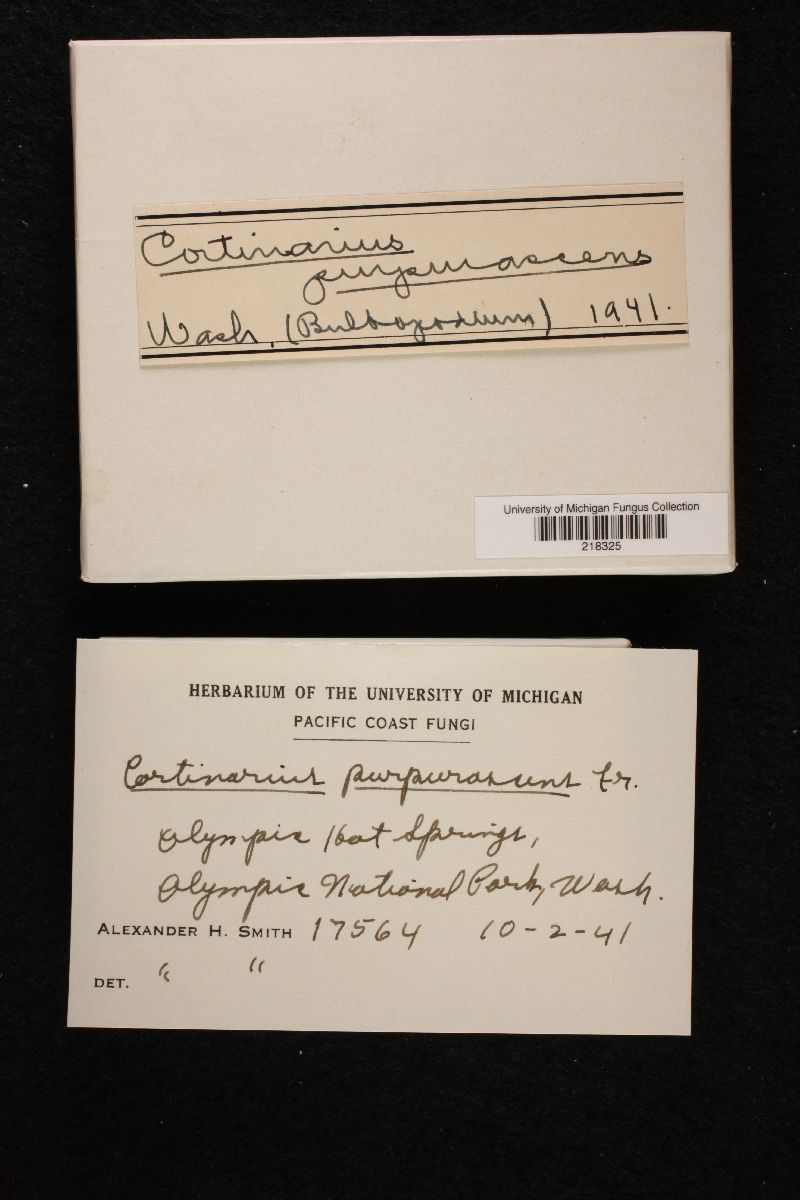 Cortinarius
purpurascens
Wash. (Bulbopodium) 1941.
University of Michigan Fungus Collection
218325
HERBARIUM OF THE UNIVERSITY OF MICHIGAN
PACIFIC COAST FUNGI
Cortinarius purpurascens Fr.
Olympic Hot Springs,
Olympic National Park, Wash.
ALEXANDER H. SMITH 17564 10-2-41
DET. " "